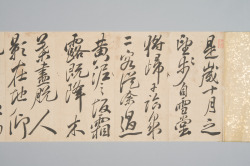 是歲十月之
望步自雪堂
將歸于臨皋
二客從余過
黃泥之坂霜
露既降木
葉盡脫人
影在地仰